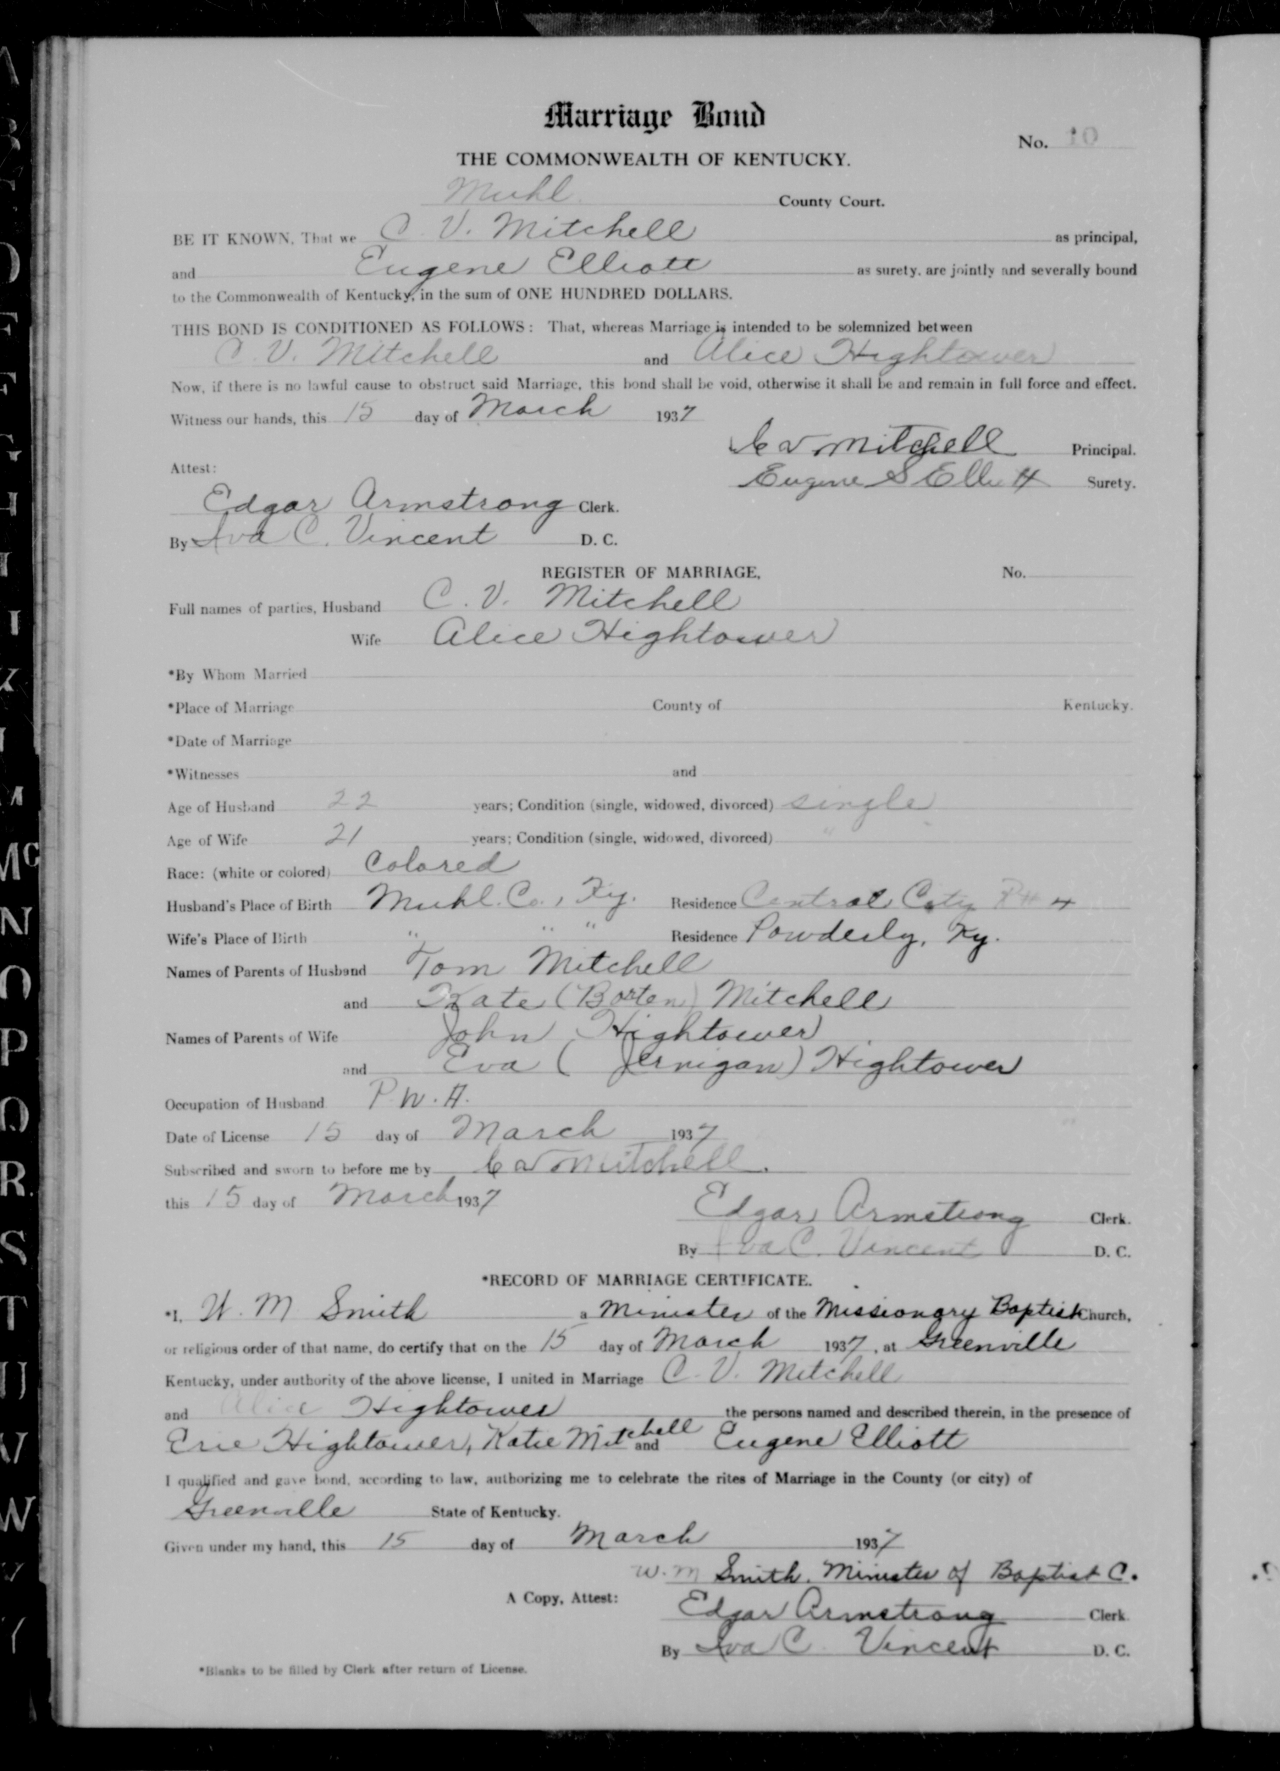 Marriage Bond
No. 10
THE COMMONWEALTH OF KENTUCKY.
Muhl. County Court.
BE IT KNOWN, That we C. V. Mitchell as principal,
and Eugene Elliott as surety, are jointly and severally bound
to the Commonwealth of Kentucky, in the sum of ONE HUNDRED DOLLARS.
THIS BOND IS CONDITIONED AS FOLLOWS: That, whereas Marriage is intended to be solemnized between
C. V. Mitchell and Alice Hightower
Now, if there is no lawful cause to obstruct said Marriage, this bond shall be void, otherwise it shall be and remain in full force and effect.
Witness our hands, this 15 day of March 1937
C V Mitchell Principal.
Attest: Eugene S Elliott Surety.
Edgar Armstrong Clerk.
By Iva C. Vincent D. C.
REGISTER OF MARRIAGE, No.
Full names of parties, Husband C. V. Mitchell
Wife Alice Hightower
*By Whom Married
*Place of Marriage County of Kentucky.
*Date of Marriage
*Witnesses and
Age of Husband 22 years; Condition (single, widowed, divorced) single
Age of Wife 21 years; Condition (single, widowed, divorced) "
Race: (white or colored) Colored
Husband's Place of Birth Muhl. Co., Ky. Residence Central City
Wife's Place of Birth " " " Residence Powderly, Ky.
Names of Parents of Husband Tom Mitchell
and Kate (Borten) Mitchell
Names of Parents of Wife John Hightower
and Eva (Jernigan) Hightower
Occupation of Husband P. W. A.
Date of License 15 day of March 1937
Subscribed and sworn to before me by C V Mitchell.
this 15 day of March 1937
Edgar Armstrong Clerk.
By Iva C. Vincent D. C.
*RECORD OF MARRIAGE CERTIFICATE.
*I, W. M Smith a Minister of the Missionary Baptist Church,
or religious order of that name, do certify that on the 15 day of March 1937, at Greenville
Kentucky, under authority of the above license, I united in Marriage C. V. Mitchell
and Alice Hightower the persons named and described therein, in the presence of
Erie Hightower, Katie Mitchell and Eugene Elliott
I qualified and gave bond, according to law, authorizing me to celebrate the rites of Marriage in the County (or city) of
Greenville State of Kentucky.
Given under my hand, this 15 day of March 1937
W. M Smith. Minister of Baptist C.
A Copy, Attest: Edgar Armstrong Clerk
By Iva C. Vincent D. C.
*Blanks to be filled by Clerk after return of License.